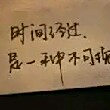 时间经过，
是一种不可抗